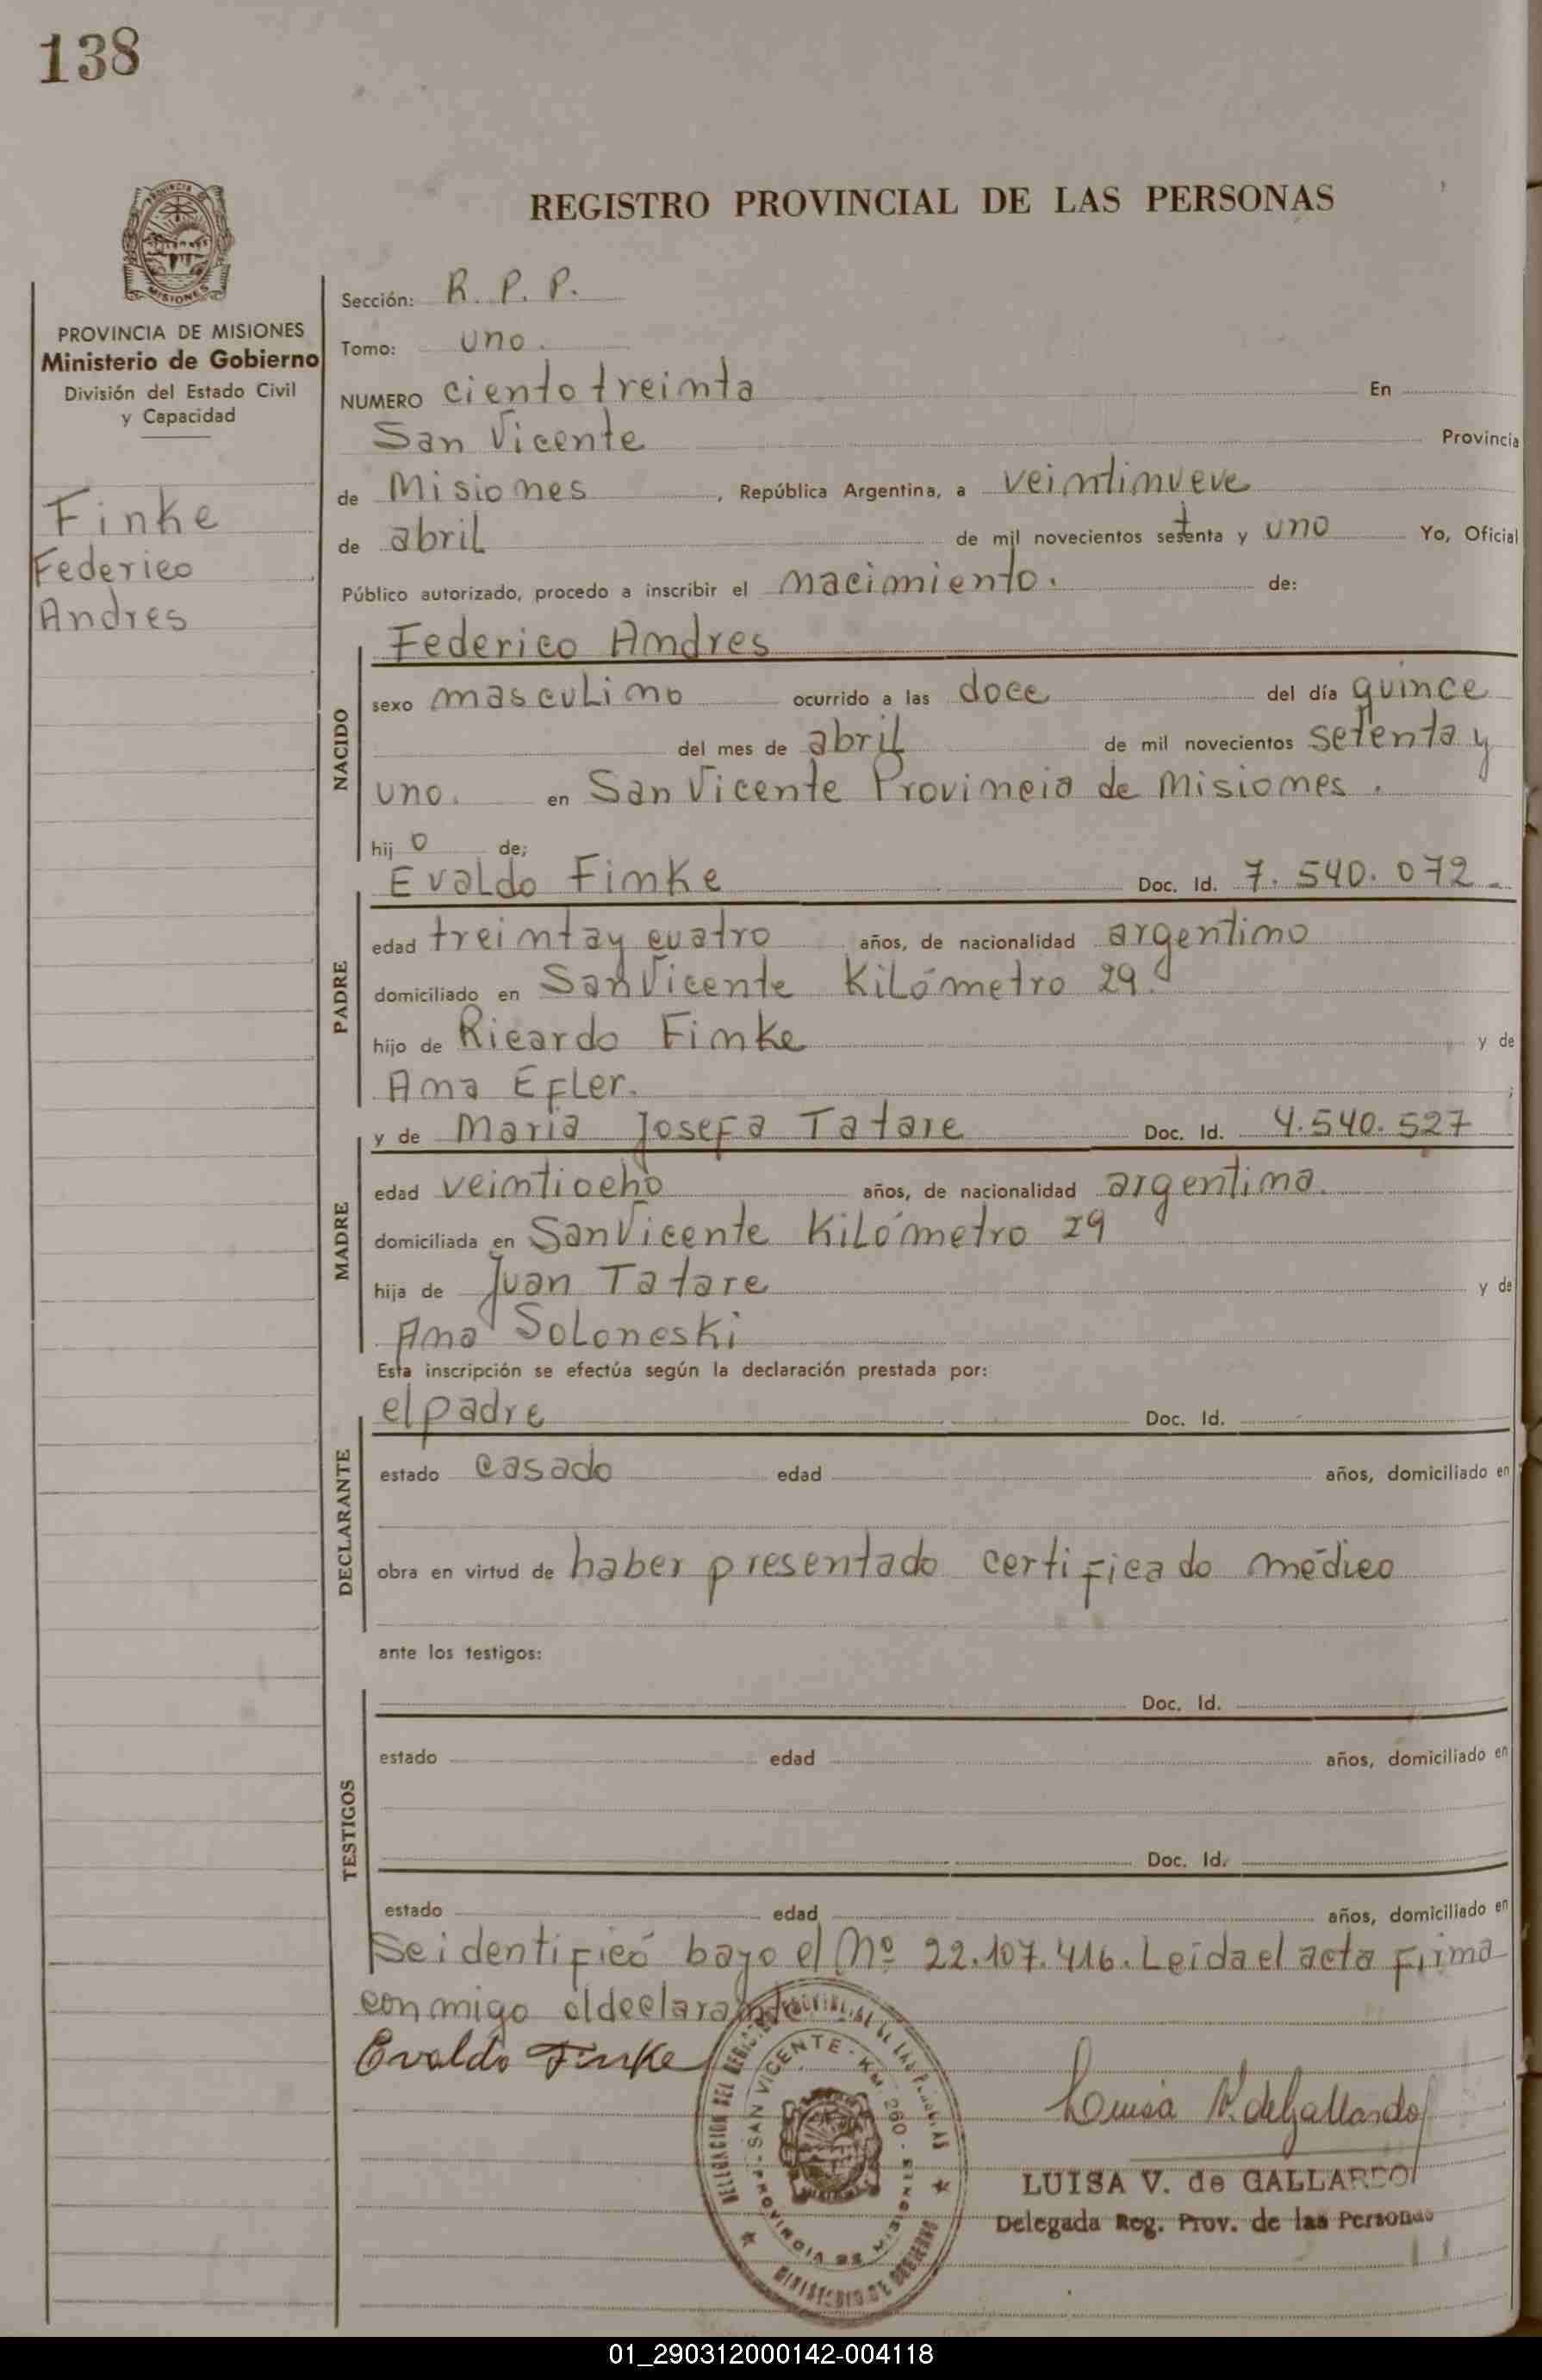 138
REGISTRO PROVINCIAL DE LAS PERSONAS
PROVINCIA MISIONES
PROVINCIA DE MISIONES
Ministerio de Gobierno
División del Estado Civil
y Capacidad
Finke
Federico
Andres
Sección: R. P. P.
Tomo: uno.
NUMERO ciento treinta En
San Vicente Provincia
de Misiones, República Argentina, a veintinueve
de abril de mil novecientos setenta y uno Yo, Oficial
Público autorizado, procedo a inscribir el nacimiento. de:
NACIDO
Federico Andres
sexo masculino ocurrido a las doce del día quince
del mes de abril de mil novecientos setenta y
uno. en San Vicente Provincia de Misiones.
hijo de;
PADRE
Evaldo Finke Doc. Id. 7.540.072
edad treinta y cuatro años, de nacionalidad argentino
domiciliado en San Vicente Kilómetro 29.
hijo de Ricardo Finke y de
Ana Efler. ;
MADRE
y de Maria Josefa Tatare Doc. Id. 4.540.527
edad veintiocho años, de nacionalidad argentina.
domiciliada en San Vicente Kilómetro 29
hija de Juan Tatare y de
Ana Soloneski
Esta inscripción se efectúa según la declaración prestada por:
DECLARANTE
el padre Doc. Id.
estado casado edad años, domiciliado en
obra en virtud de haber presentado certificado médico
ante los testigos:
TESTIGOS
Doc. Id.
estado edad años, domiciliado en
Doc. Id.
estado edad años, domiciliado en
Se identificó bayo el Nº 22.107.416. Leída el acta firma
conmigo el declarante
Evaldo Finke
DELEGACION DEL REGISTRO PROVINCIAL DE LAS PERSONAS
SAN VICENTE - KM. 260 - MISIONES
PROVINCIA DE MISIONES
MINISTERIO DE GOBIERNO
Luisa V. de Gallardo
LUISA V. de GALLARDO
Delegada Reg. Prov. de las Personas
01_290312000142-004118